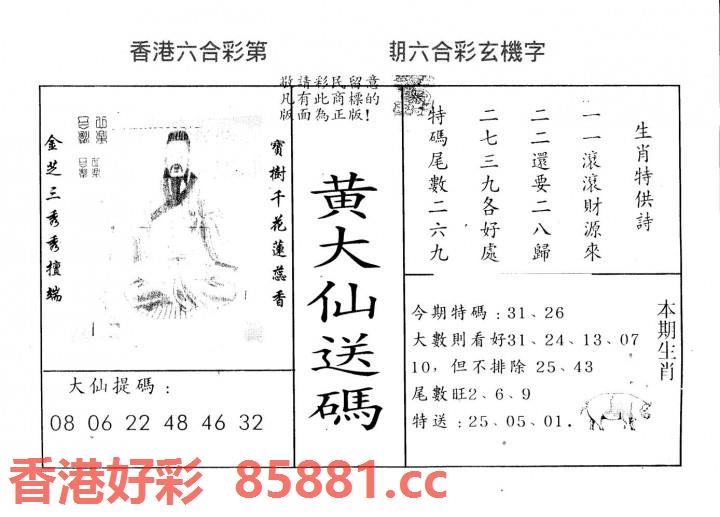 香港六合彩第
期六合彩玄機字
敬請彩民留意
凡有此商標的
版面為正版!
金芝三秀秀檀端
寶樹千花蓮蕊香
大仙提碼:
08 06 22 48 46 32
黃大仙送碼
生肖特供詩
一一滾滾財源來
二二還要二八歸
二七三九各好處
特碼尾數二六九
今期特碼:31、26
大數則看好31、24、13、07
10,但不排除 25、43
尾數旺2、6、9
特送:25、05、01.
本期生肖
香港好彩 85881.cc